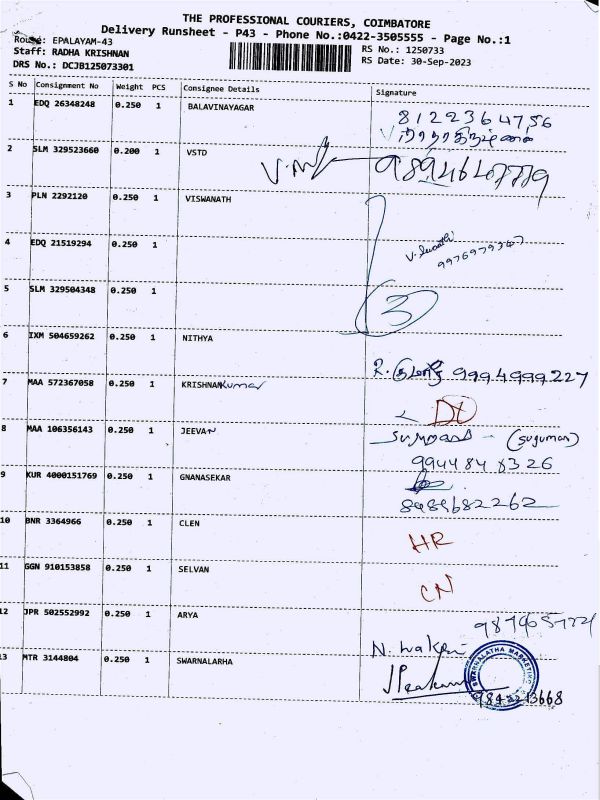 THE PROFESSIONAL COURIERS, COIMBATORE
Delivery Runsheet - P43 - Phone No.:0422-3505555 - Page No.:1
Route: EPALAYAM-43
Staff: RADHA KRISHNAN
DRS No.: DCJB125073301
RS No.: 1250733
RS Date: 30-Sep-2023
S No Consignment No Weight PCS Consignee Details Signature
1 EDQ 26348248 0.250 1 BALAVINAYAGAR 8122364756
2 SLM 329523660 0.200 1 VSTD
3 PLN 2292120 0.250 1 VISWANATH
4 EDQ 21519294 0.250 1 9976979347
5 SLM 329504348 0.250 1 3
6 IXM 504659262 0.250 1 NITHYA
R. குமார் 9994999227
7 MAA 572367058 0.250 1 KRISHNAN Kumar
8 MAA 106356143 0.250 1 JEEVAN (suguman)
9944848326
9 KUR 4000151769 0.250 1 GNANASEKAR
8489682262
10 BNR 3364966 0.250 1 CLEN HR
11 GGN 910153858 0.250 1 SELVAN CN
12 JPR 502552992 0.250 1 ARYA
13 MTR 3144804 0.250 1 SWARNALARHA
SWARNALATHA MARKETING